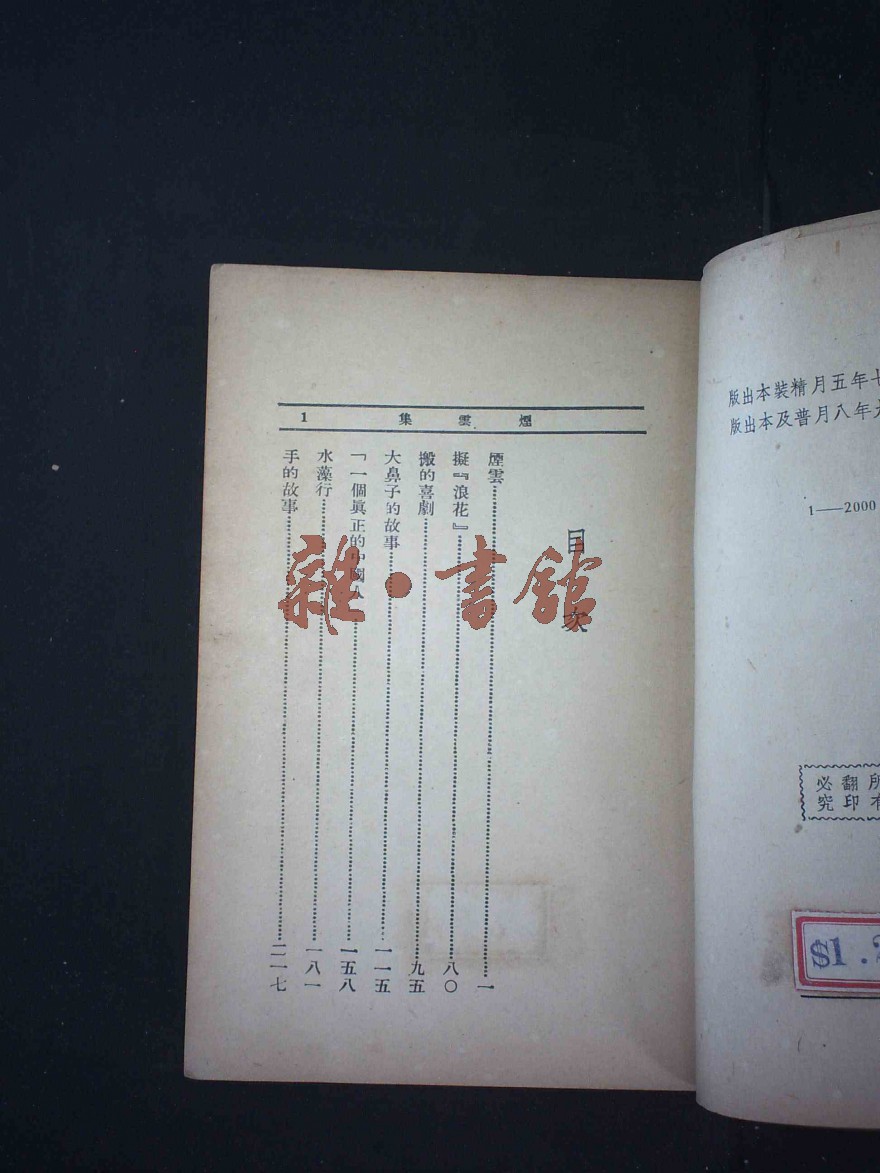 煙雲集 1
目次
煙雲……一
擬『浪花』……八〇
搬的喜劇……九五
大鼻子的故事……一一五
「一個眞正的中國人……一五八
水藻行……一八一
手的故事……二一七
雜·書館
七年五月精裝本出版
年八月普及本出版
1—2000
所有
翻印
必究
$1.